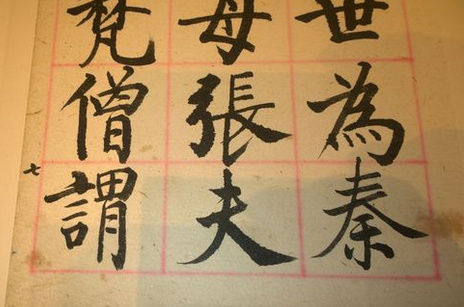 世為秦
母張夫
梵僧謂
七